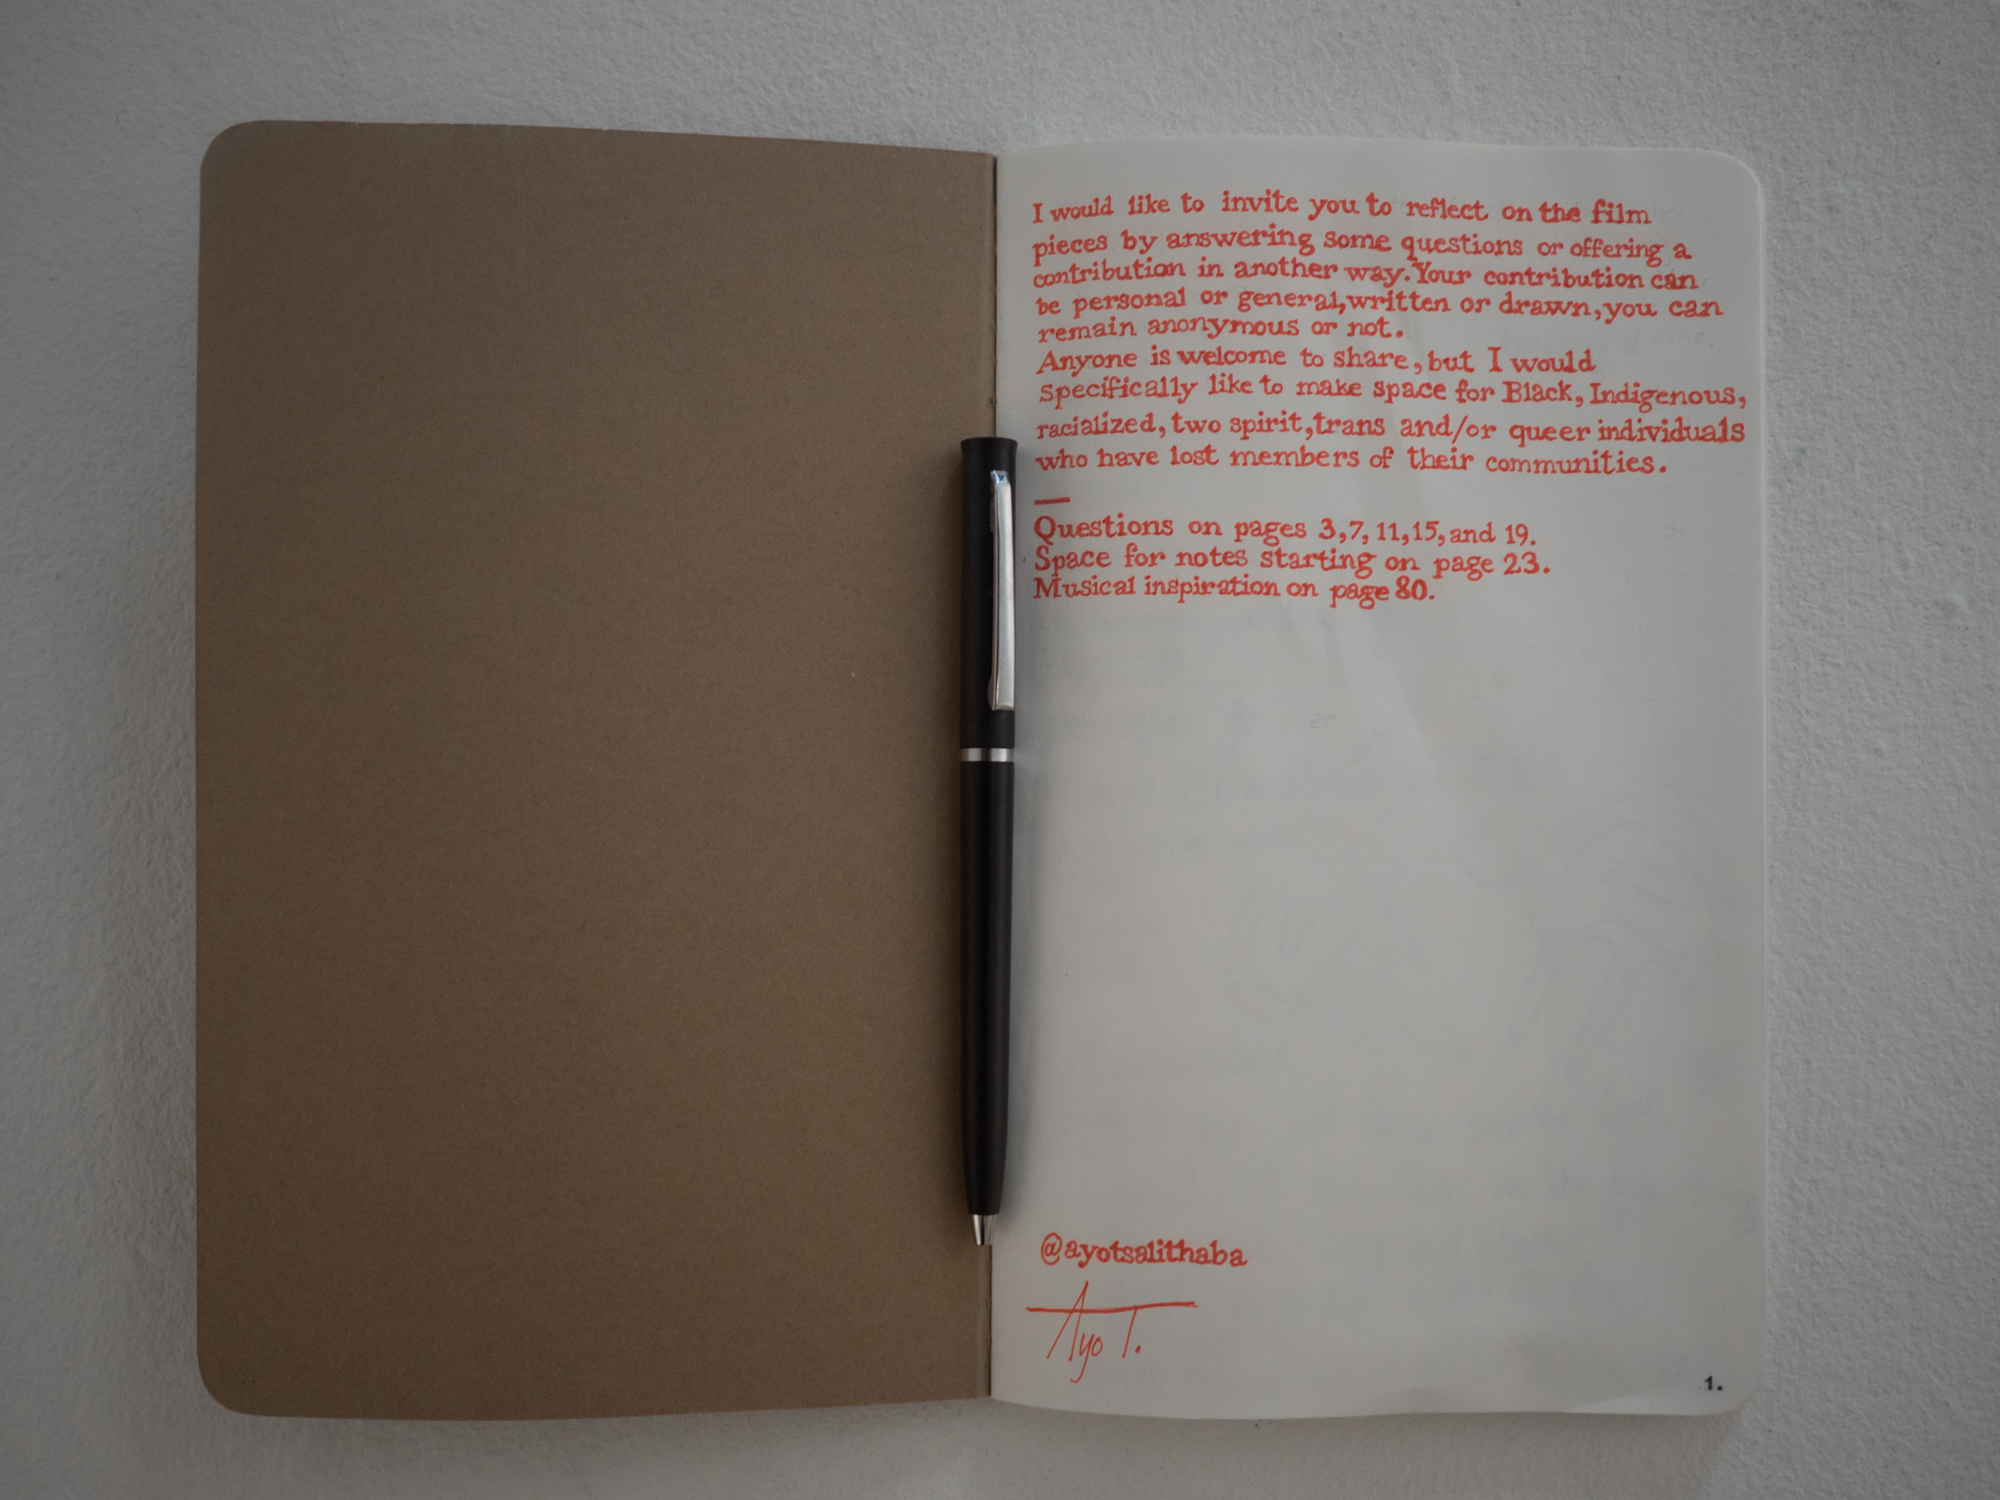 I would like to invite you to reflect on the film
pieces by answering some questions or offering a
contribution in another way. Your contribution can
be personal or general, written or drawn, you can
remain anonymous or not.
Anyone is welcome to share, but I would
specifically like to make space for Black, Indigenous,
racialized, two spirit, trans and/or queer individuals
who have lost members of their communities.
—
Questions on pages 3, 7, 11, 15, and 19.
Space for notes starting on page 23.
Musical inspiration on page 80.
@ayotsalithaba
Ayo T.
1.